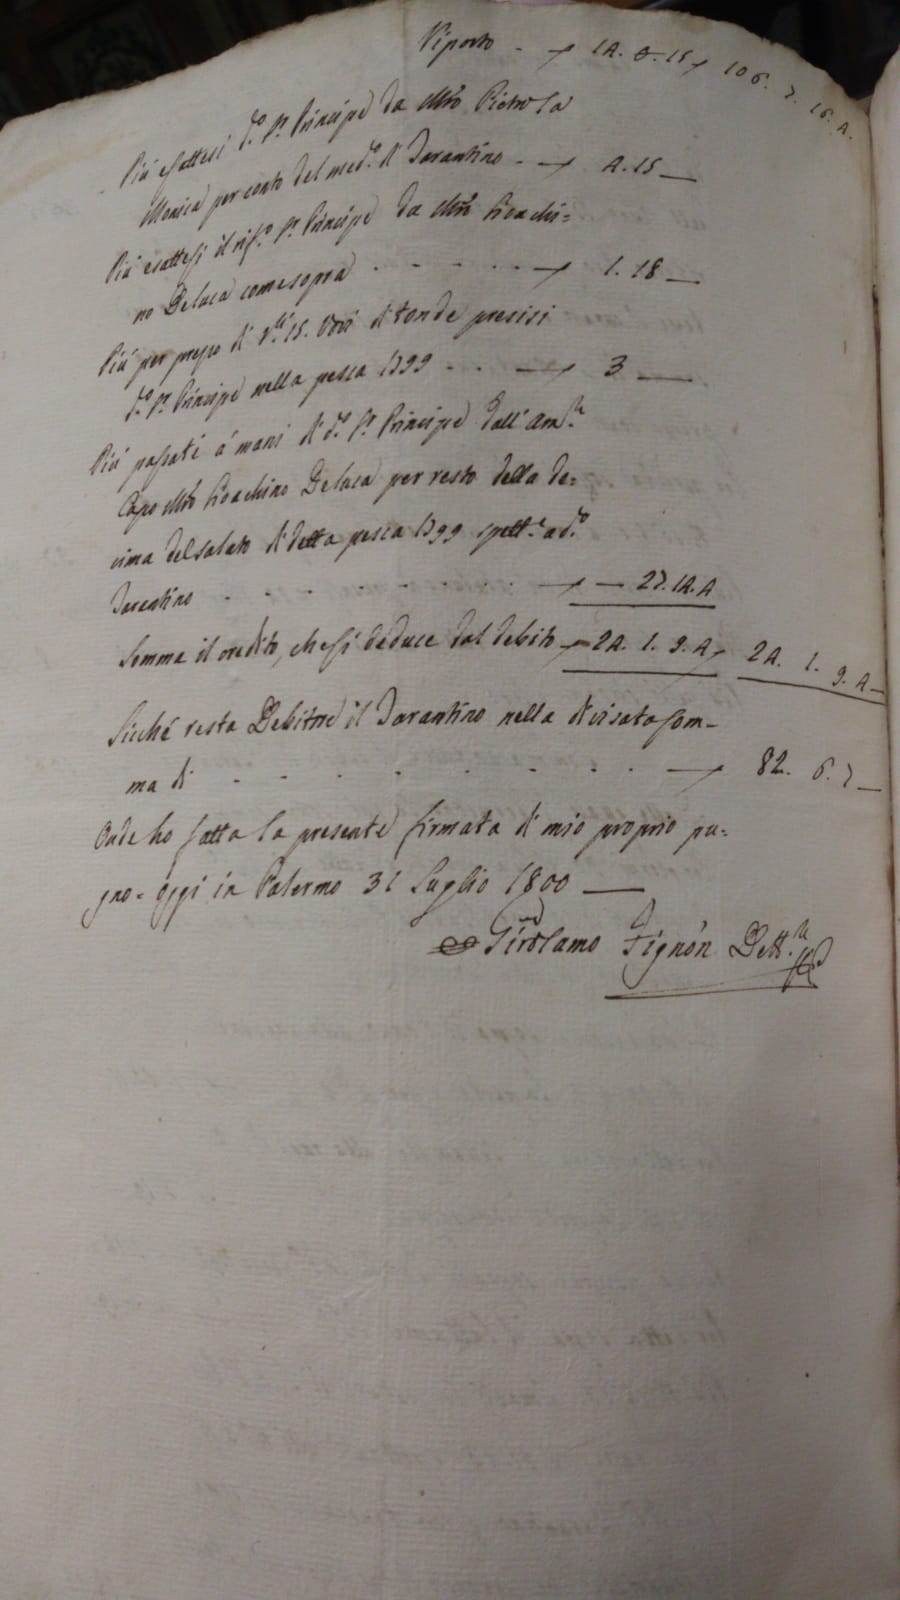 Riporto - 14. 8. 15 106. 7. 16. 4.
Più esattesi d.o S.r Principe da Mro Pietro La
Monica per conto del med.o di Tarantino - 4. 15 —
Più esattesi il rif.o S.r Principe da Mro Gioachi=
no Deluca come sopra - - - - - 1. 18 —
Più per prezzo di 15. Ova di tonde presisi
d.o S.r Principe nella pesca 1799 - - - 3 —
Più passati a mani di d.o S.r Principe dall'
Capo Mro Gioachino Deluca per resto della de=
cima del salato di detta pesca 1799 spett.e a d.o
Tarantino - - - - - — 27. 14. 4
Somma il credito, che si deduce dal debito 24. 1. 9. 4 24. 1. 9. 4 —
Sicché resta Debitore il Tarantino nella divisata som=
ma di - - - - - - - 82. 6. 7 —
Onde ho fatta la presente firmata di mio proprio pu=
gno = oggi in Palermo 31 Luglio 1800 —
Girolamo Fignòn